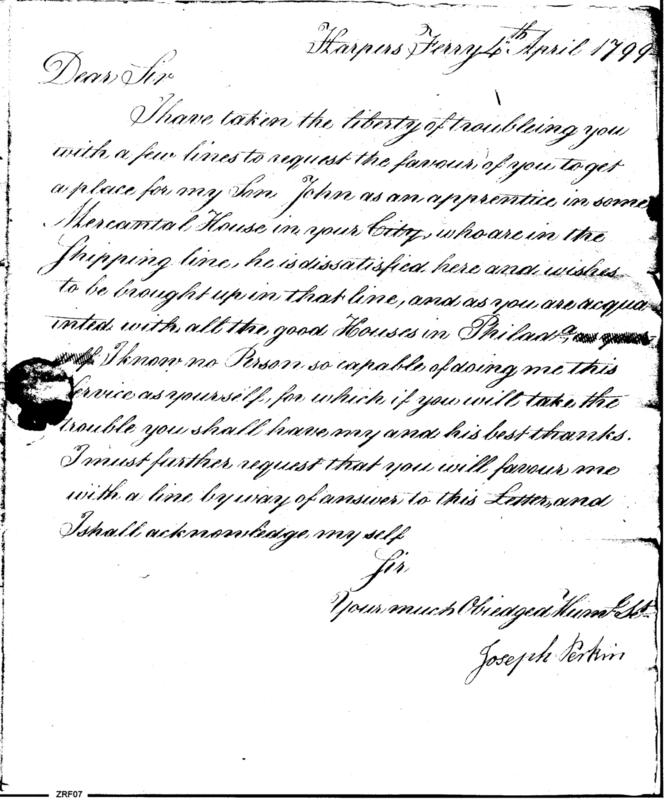 Harpers Ferry 4th April 1799
Dear Sir
I have taken the liberty of troubleing you
with a few lines to request the favour, of you to get
a place for my Son John as an apprentice in some
Mercantal House in your City, who are in the
Shipping line, he is dissatisfied here and wishes
to be brought up in that line, and as you are acqua
inted with all the good Houses in Philada,
I know no Person so capable of doing me this
Service as yourself, for which if you will take the
trouble you shall have my and his best thanks.
I must further request that you will favour me
with a line by way of answer to this Letter, and
I shall acknowledge my self
Sir
Your much Obledged Humbe St
Joseph Perkin
ZRF07